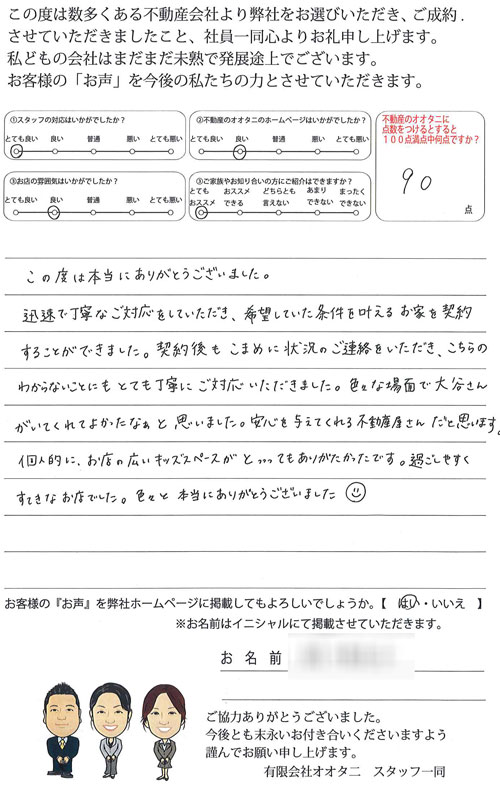 この度は数多くある不動産会社より弊社をお選びいただき、ご成約.
させていただきましたこと、社員一同心よりお礼申し上げます。
私どもの会社はまだまだ未熟で発展途上でございます。
お客様の「お声」を今後の私たちの力とさせていただきます。
①スタッフの対応はいかがでしたか？
とても良い 良い 普通 悪い とても悪い
②不動産のオオタニのホームページはいかがでしたか？
とても良い 良い 普通 悪い とても悪い
不動産のオオタニに
点数をつけるとすると
１００点満点中何点ですか？
90
点
③お店の雰囲気はいかがでしたか？
とても良い 良い 普通 悪い とても悪い
③ご家族やお知り合いの方にご紹介はできますか？
とても おススメ どちらとも あまり まったく
おススメ できる 言えない できない できない
この度は本当にありがとうございました。
迅速で丁寧なご対応をしていただき、希望していた条件を叶えるお家を契約
することができました。契約後もこまめに状況のご連絡をいただき、こちらの
わからないことにもとても丁寧にご対応いただきました。色々な場面で大谷さん
がいてくれてよかったなぁと思いました。安心を与えてくれる不動産屋さんだと思います。
個人的に、お店の広いキッズスペースがとっってもありがたかったです。過ごしやすく
すてきなお店でした。色々と本当にありがとうございました
お客様の『お声』を弊社ホームページに掲載してもよろしいでしょうか。【 はい・いいえ 】
※お名前はイニシャルにて掲載させていただきます。
お 名 前
ご協力ありがとうございました。
今後とも末永いお付き合いくださいますよう
謹んでお願い申し上げます。
有限会社オオタニ スタッフ一同